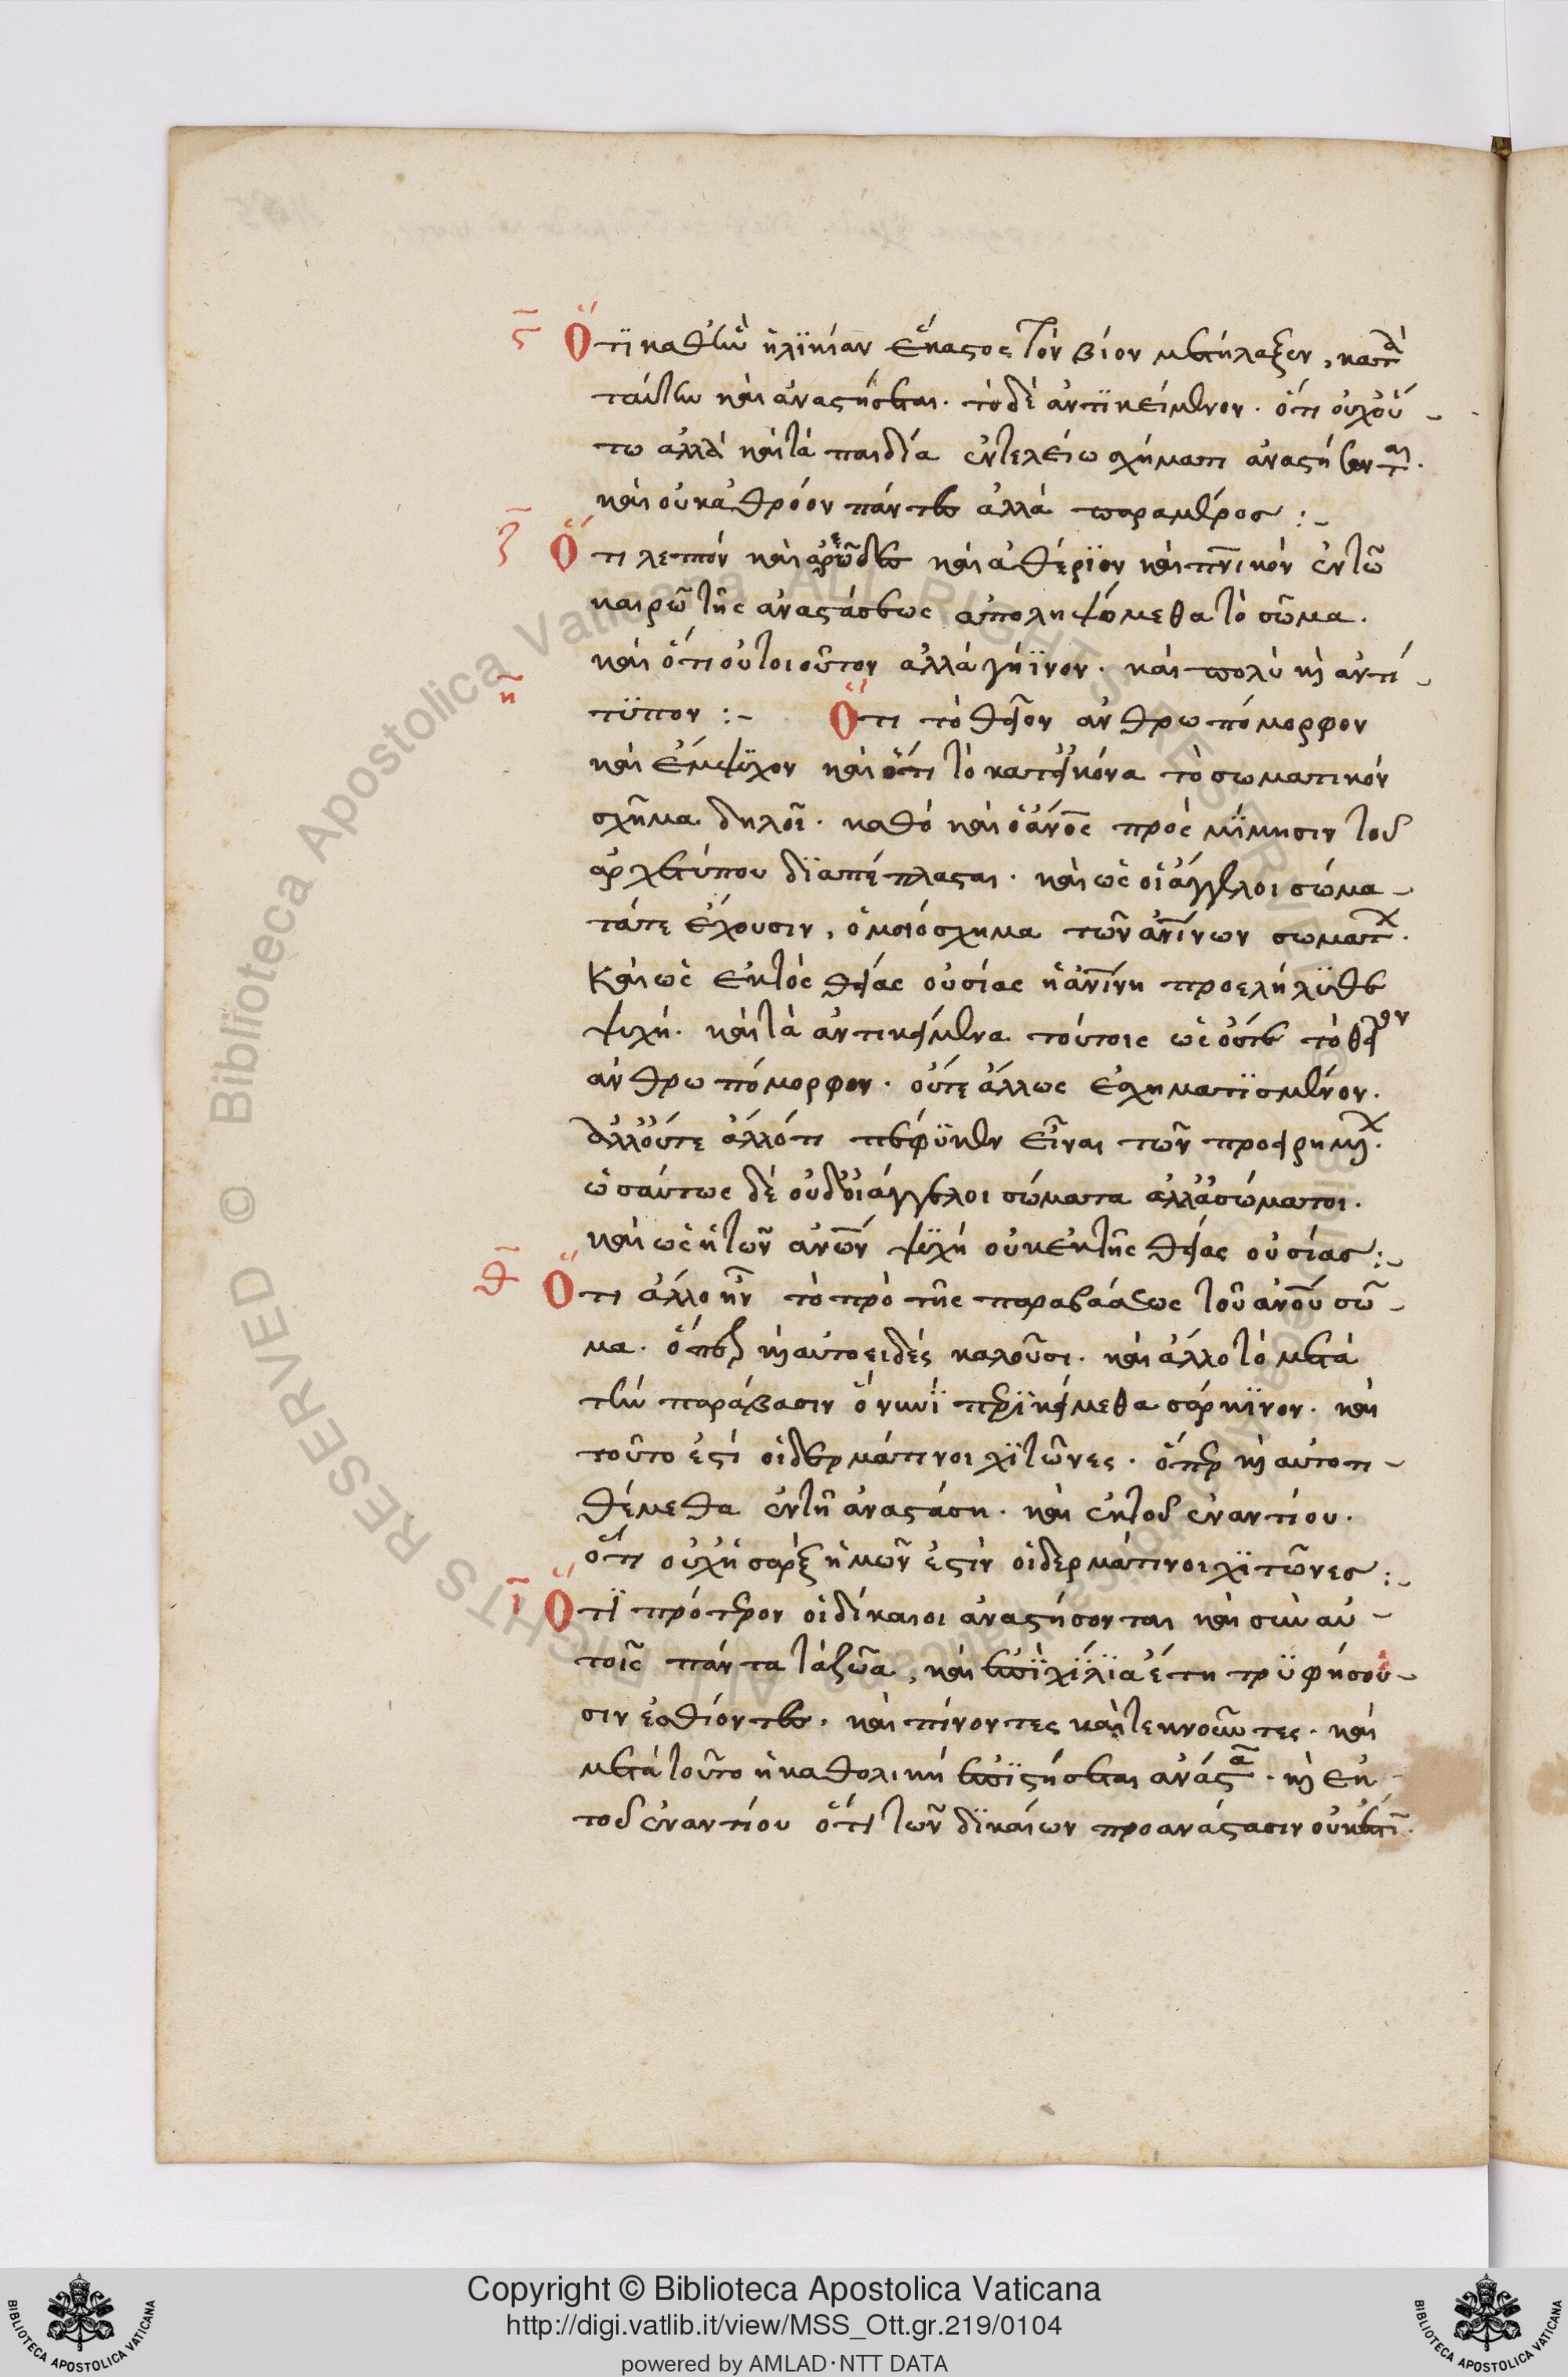 ς Ὅτι καθ' ἣν ἡλικίαν ἕκαστος τὸν βίον μετήλαξεν, κατὰ
ταύτην καὶ ἀναστήσεται. τὸ δὲ ἀντικείμενον. ὅτι οὐχ οὕ-
τω ἀλλὰ καὶ τὰ παιδία ἐν τελείω σχήματι ἀναστήσονται.
καὶ οὐκ ἀθρόον πάντες ἀλλὰ παραμέρος :-
ζ Ὅτι λεπτὸν καὶ ἀερῶδες καὶ αἰθέριον καὶ πνικὸν ἐν τῶ
καιρῶ τῆς ἀναστάσεως ἀποληψόμεθα τὸ σῶμα.
καὶ ὅτι οὐ τοιοῦτον ἀλλὰ γήϊνον. καὶ πολὺ καὶ ἀντί-
η τυπον :- Ὅτι τὸ θεῖον ἀνθρωπόμορφον
καὶ ἔμψυχον καὶ ὅτι τὸ κατεἰκόνα τὸ σωματικὸν
σχῆμα δηλοῖ. καθὸ καὶ ὁ ἄνος πρὸς μίμησιν τοῦ
ἀρχετύπου διαπέπλασται. καὶ ὡς οἱ ἄγγελοι σώμα-
τά τε ἔχουσιν, ὁμοιόσχημα τῶν ἀνίνων σωμάτων.
Καὶ ὡς ἐκ τὸς θείας οὐσίας ἡ ἀνίνη προελήλυθε
ψυχή. καὶ τὰ ἀντικείμενα τούτοις ὡς οὔτε τὸ θεῖον
ἀνθρωπόμορφον. οὔτε ἄλλως ἐσχηματισμένον.
ἀλλ' οὔτε ἄλλό τι πέφυκεν εἶναι τῶν προειρημένων.
ὡσαύτως δὲ οὐδ' οἱ ἄγγελοι σώματα ἀλλ' ἀσώματοι.
καὶ ὡς ἡ τῶν ἀνων ψυχὴ οὐκ ἐκ τῆς θείας οὐσίας :-
θ Ὅτι ἄλλο ἦν τὸ πρὸ τῆς παραβάσεως τοῦ ἀνου σῶ-
μα. ὅπερ καὶ αὐτοειδὲς καλοῦσι. καὶ ἄλλο τὸ μετὰ
τὴν παράβασιν ὃ νυνὶ περικείμεθα σάρκινον. καὶ
τοῦτό ἐστι οἱ δερμάτινοι χιτῶνες. ὅπερ καὶ αὐτοτι-
θέμεθα ἐν τῆ ἀναστάσει. καὶ ἐκ τοῦ ἐναντίου.
ὅτι οὐχ ἡ σὰρξ ἡμῶν ἐστὶν οἱ δερμάτινοι χιτῶνες :-
ι Ὅτι πρότερον οἱ δίκαιοι ἀναστήσονται καὶ σὺν αὐ-
τοῖς πάντα τὰ ζῶα, καὶ ἐπὶ χίλια ἔτη τρυφήσου-
σιν ἐσθίοντες, καὶ πίνοντες καὶ τεκνοῦντες. καὶ
μετὰ τοῦτο ἡ καθολικὴ ἐπιστήσεται ἀνάστασις. καὶ ἐκ
τοῦ ἐναντίου ὅτι τῶν δικαίων προανάστασιν οὐκ ἔστι.
Copyright © Biblioteca Apostolica Vaticana
http://digi.vatlib.it/view/MSS_Ott.gr.219/0104
powered by AMLAD·NTT DATA